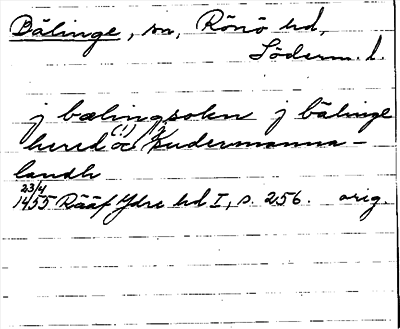 Bälinge, sn, Rönö hd,
Söderm. l.
j bælingsokn j bälinge
hered (!) oc Sudermanna-
landh
23/4
1455 Rääf Ydre hd I, s. 256. orig.